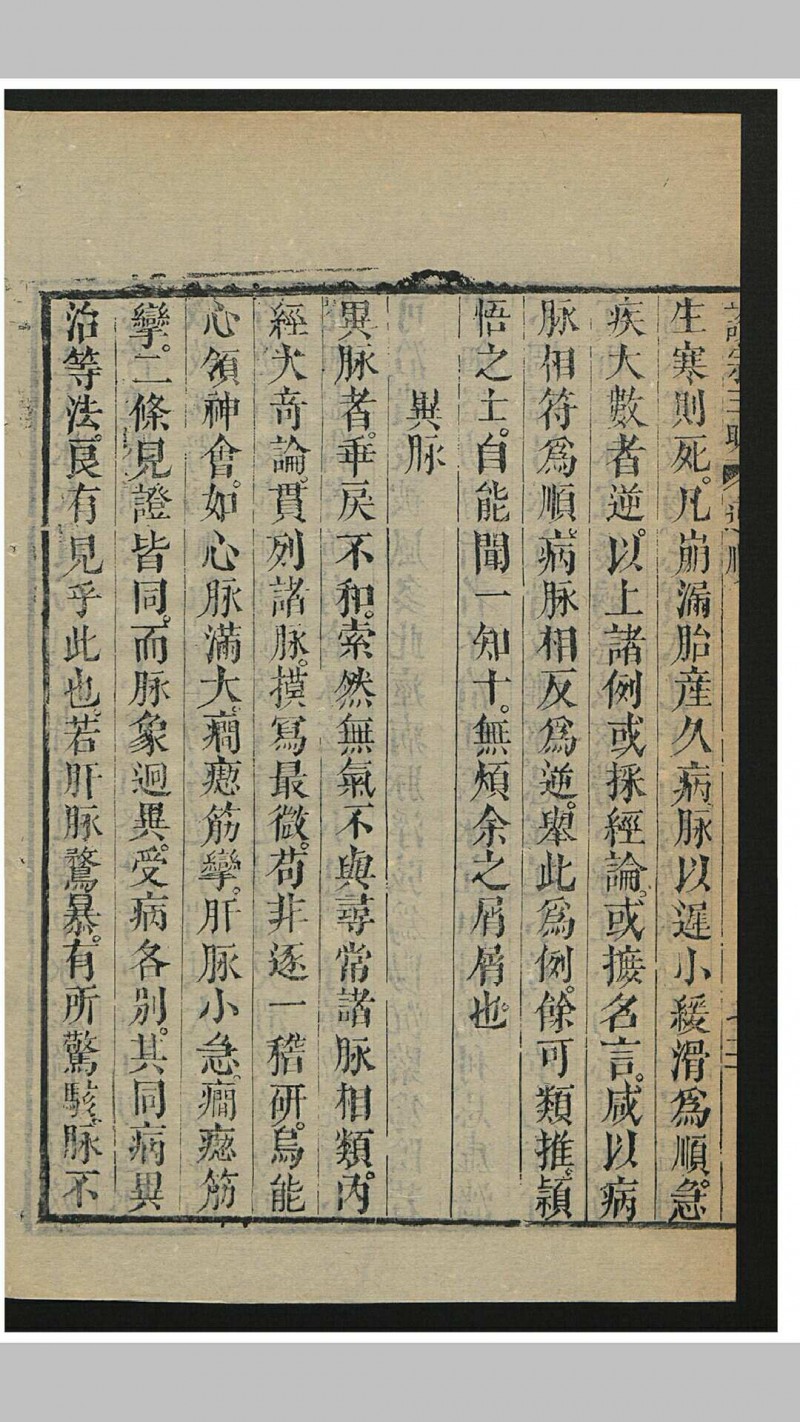 生寒則死。凡崩漏胎產久病脉以遲小緩滑爲順。急
疾大數者逆。以上諸例或採經論。或摭名言。咸以病
脉相符爲順。病脉相反爲逆。舉此爲例。餘可類推。穎
悟之士。自能聞一知十。無煩余之屑屑也。
異脉
異脉者。乖戾不和。索然無氣不與尋常諸脉相類。內
經大奇論。貫列諸脉。摸寫最微。苟非逐一稽研。烏能
心領神會。如心脉滿大。癎瘛筋攣。肝脉小急。癎瘛筋
攣。二條見證皆同。而脉象迥異。受病各別。其同病異
治等法。良有見乎此也。若肝脉驁暴。有所驚駭。脉不